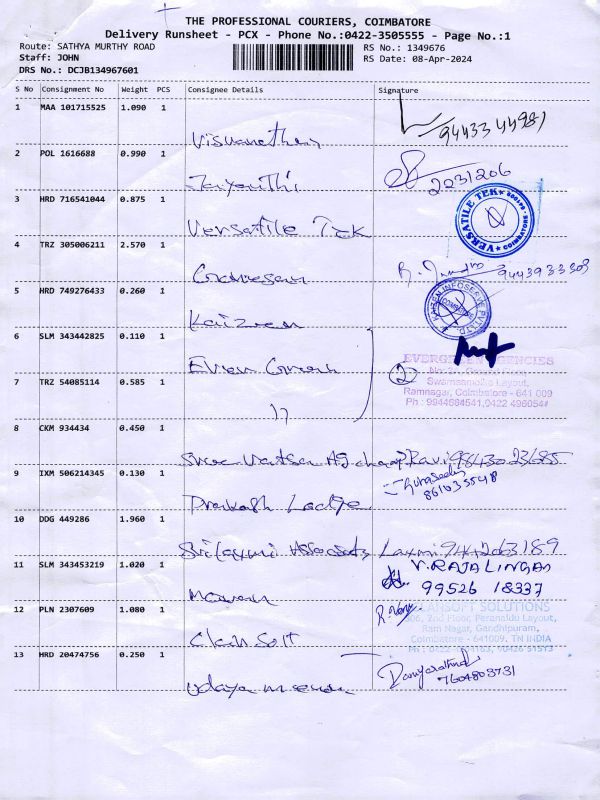 THE PROFESSIONAL COURIERS, COIMBATORE
Delivery Runsheet - PCX - Phone No.:0422-3505555 - Page No.:1
Route: SATHYA MURTHY ROAD
RS No.: 1349676
Staff: JOHN
RS Date: 08-Apr-2024
DRS No.: DCJB134967601
S No Consignment No Weight PCS Consignee Details Signature
1 MAA 101715525 1.090 1
Viswanathan
2 POL 1616688 0.990 1
2231206
3 HRD 716541044 0.875 1
Versatile Tek
VERSATILE TEK
COIMBATORE
4 TRZ 305006211 2.570 1
9443933303
5 HRD 749276633 0.260 1
Kaizen
KAIZEN INFOSERVE PVT LTD
6 SLM 343442825 0.110 1
Ever Green
EVERGREEN AGENCIES
Swarnambika Layout,
Ramnagar, Coimbatore - 641 009
7 TRZ 54085114 0.585 1
"
2
8 CKM 934434 0.450 1
Ravi 9843023685
9 IXM 506214345 0.130 1
861035548
Prakash Lodge
10 DDG 449286 1.960 1
Sri Laxmi Associates Laxmi 9442263189
11 SLM 343453219 1.020 1
V. RAJALINGAM
99526 18337
12 PLN 2307609 1.080 1
CLANSOFT SOLUTIONS
306, 2nd Floor, Peranaidu Layout,
Ram Nagar, Gandhipuram,
Coimbatore - 641009, TN INDIA
Clan Soft
13 HRD 20474756 0.250 1
7604803731